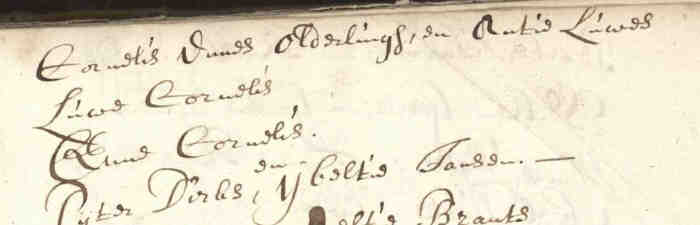 Cornelis Annes Olderlingh, en Antie Luwes
Luwe Cornelis
Anne Cornelis.
en
Pyter Dirks, Ybeltie Jansen. —
Brants